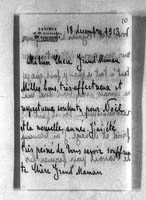 10
18 decembre 1912
Ma bien Chère Grand Maman
Mille bons, très affectueux et
respectueux souhaits pour Noël
et la nouvelle année. J'ai été
très peiné de vous savoir souffrante
Chère Grand Maman